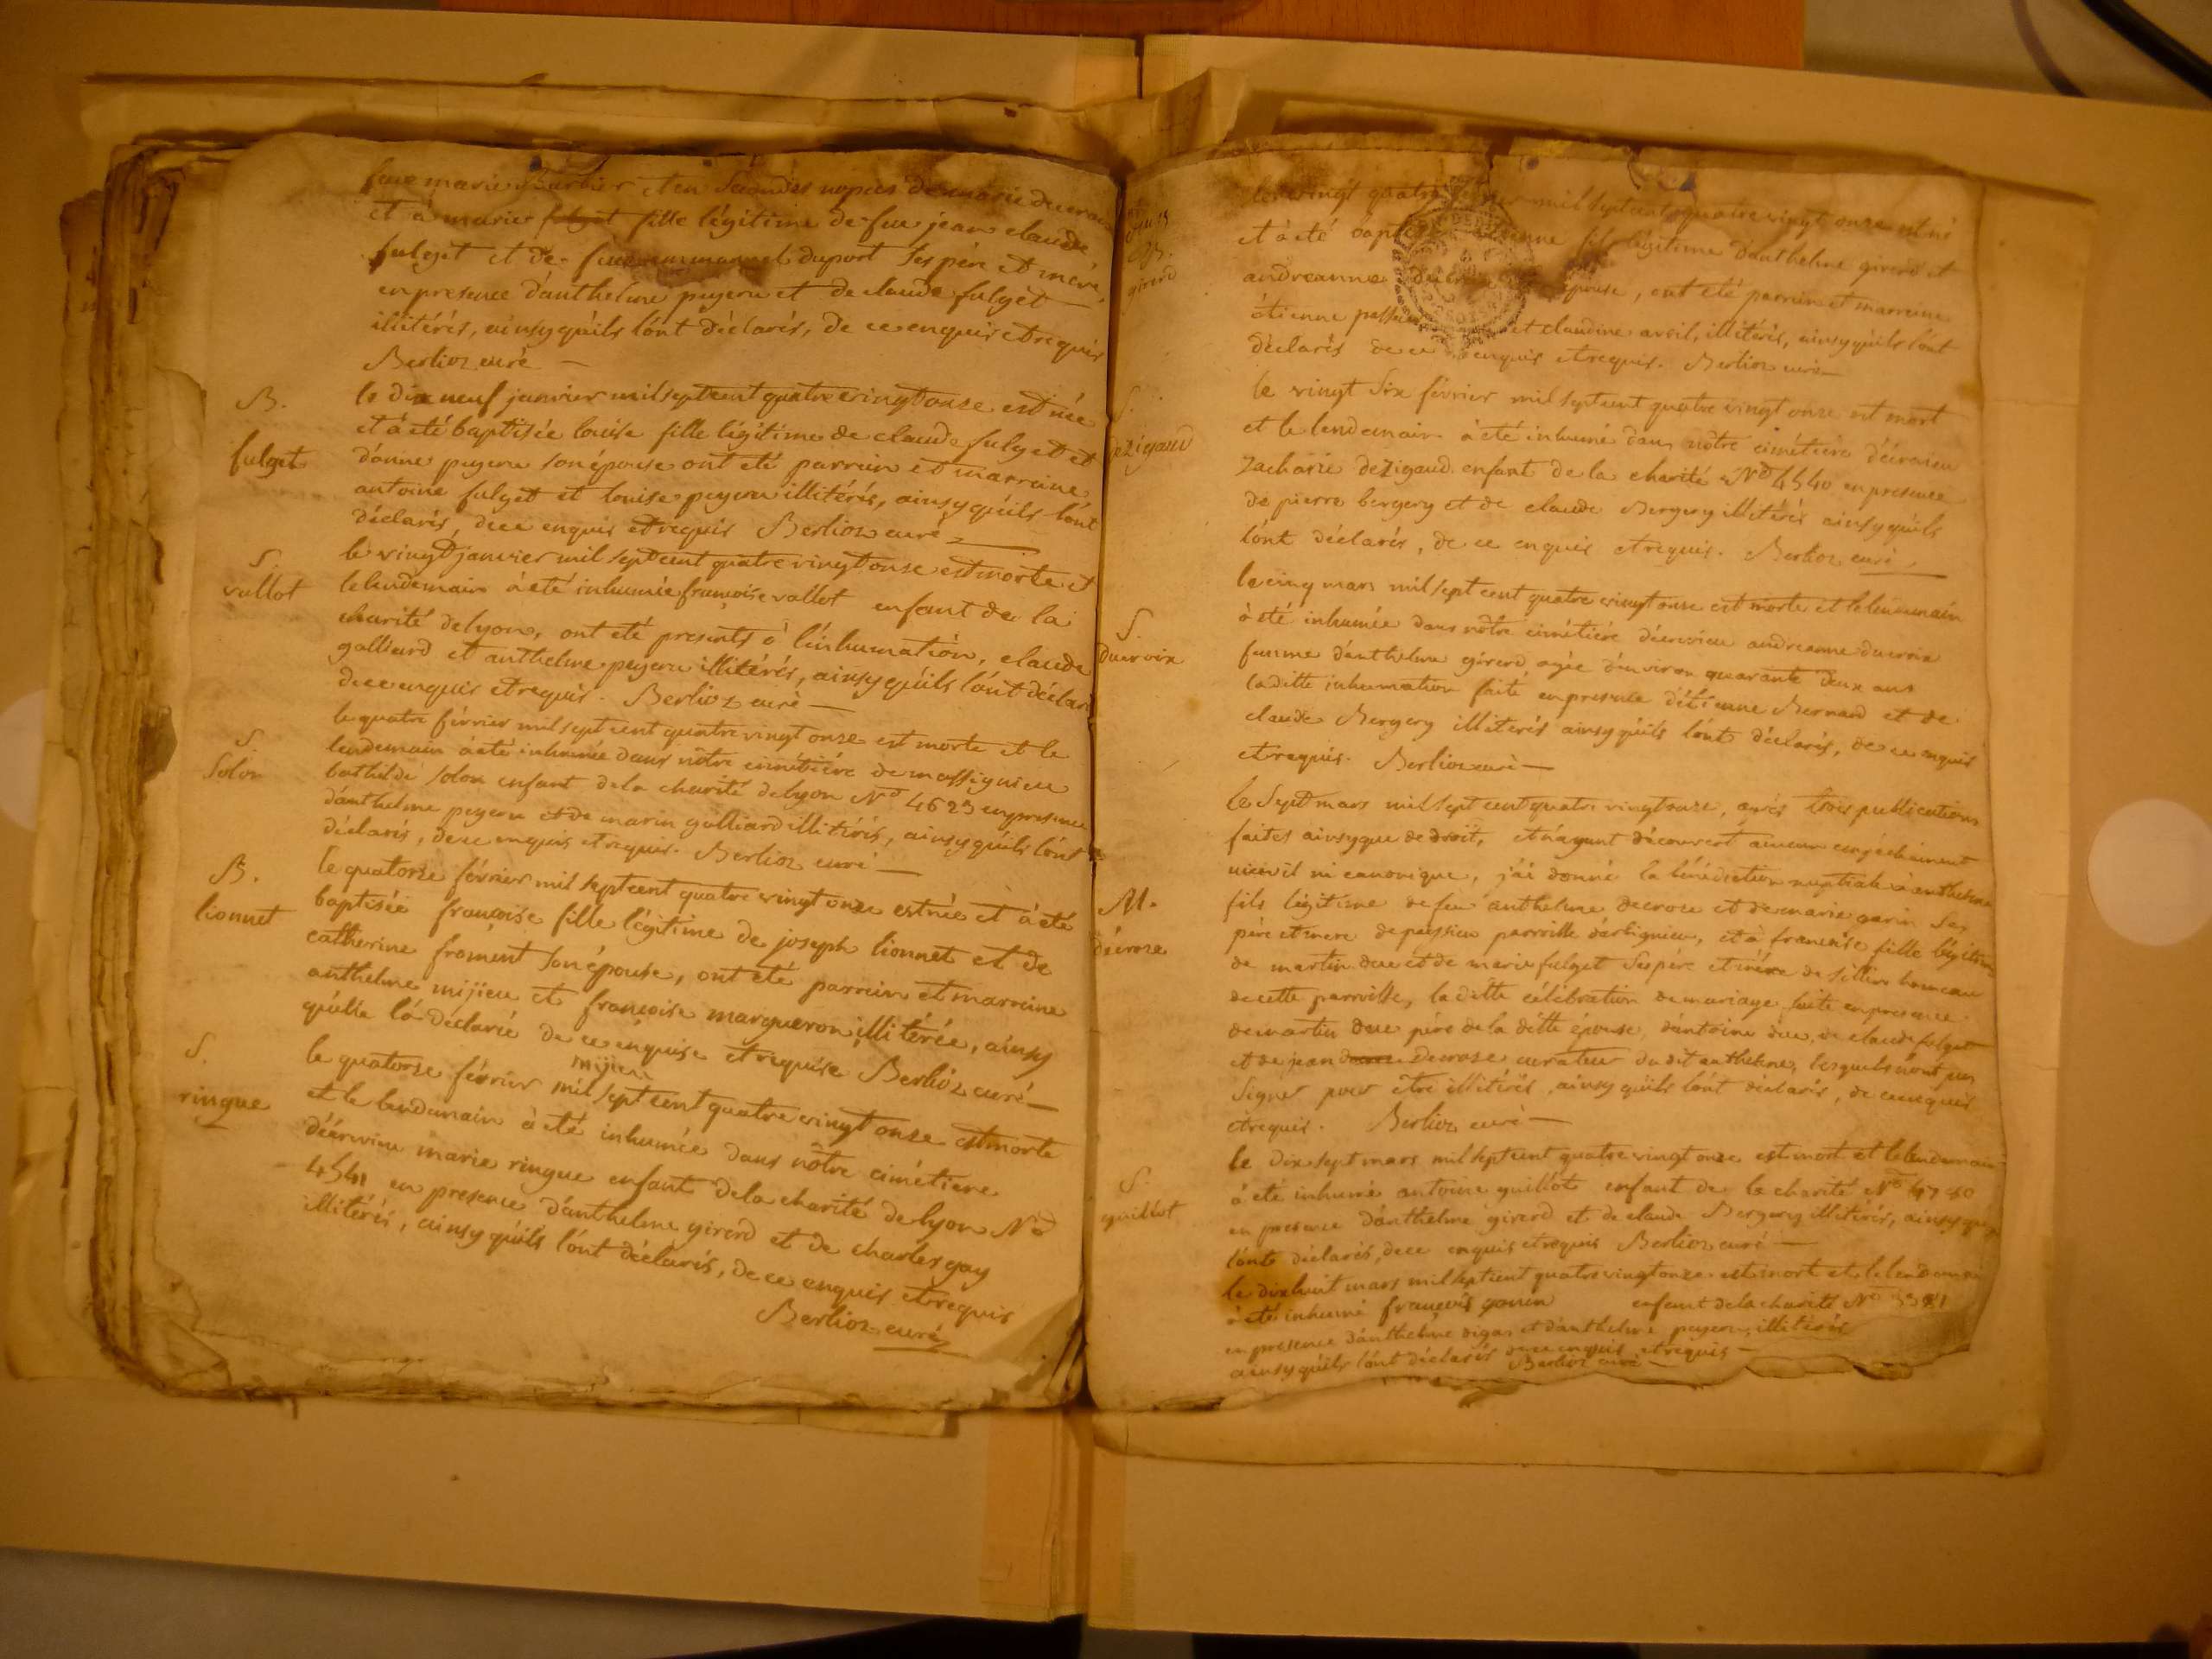 feue marie Barbier et en secondes nopces de marie ducroix
et à marie fulget fille légitime de feu jean claude
fulget et de feue emmanuel duport ses père et mère,
en presence d'anthelme peyeru et de claude fulget
illitérés, ainsy qúils lónt déclarés, de ce enquis et requis
Berlioz curé
B.
fulget
le dix neuf janvier mil sept cent quatre vingt onze est née
et à eté baptisée louise fille légitime de claude fulget et
dánne peyeru son épouse ont eté parrein et marreine
antoine fulget et louise peyeru illitérés, ainsy qúils lónt
déclarés, de ce enquis et requis Berlioz curé
S.
vallot
le vingt janvier mil sept cent quatre vingt onze est morte et
le lendemain à eté inhumée françoise vallot enfant de la
charité de lyon, ont eté presents à línhumation, claude
galliard et anthelme peyeru illitérés, ainsy qúils lónt déclaré
de ce enquis et requis. Berlioz curé
S
Solon
le quatre février mil sept cent quatre vingt onze est morte et le
lendemain à eté inhumée dans nôtre cimétière de massignieu
bathilde solon enfant de la charité de lyon No 4623 en presence
dánthelme peyeru et de marin galliard illitérés, ainsy qúils lónt
déclarés, de ce enquis et requis. Berlioz curé
B.
lionnet
le quatorze février mil sept cent quatre vingt onze est née et à eté
baptisée françoise fille légitime de joseph lionnet et de
catherine froment son épouse, ont eté parrein et marreine
anthelme mijieu et françoise marqueron illitérée, ainsy
qúelle lá déclarée de ce enquise et requise Berlioz curé
mijieu
S.
ringue
le quatorze février mil sept cent quatre vingt onze est morte
et le lendemain à eté inhumée dans nôtre cimétiere
déérvieu marie ringue enfant de la charité de lyon No
4541 en presence dánthelme girerd et de charles gay
illitérés, ainsy qúils lónt déclarés, de ce enquis et requis
Berlioz curé
B.
girerd
le vingt quatre février mil sept cent quatre vingt onze est né
et à eté baptisé etienne fils légitime dánthelme girerd et
andreanne ducroix son épouse, ont eté parrein et marreine
étienne et claudine avril, illitérés, ainsy qúils lónt
déclarés de ce enquis et requis. Berlioz curé
S.
dezigaud
le vingt six février mil sept cent quatre vingt onze est mort
et le lendemain à eté inhumé dans nôtre cimétiere déérvieu
zacharie dezigaud enfant de la charité No 4540 en presence
de pierre bergery et de claude Bergery illitérés ainsy qúils
lónt déclarés, de ce enquis et requis. Berlioz curé
S.
ducroix
le cinq mars mil sept cent quatre vingt onze est morte et le lendemain
à eté inhumée dans nôtre cimétiére déérvieu andreanne ducroix
femme dánthelme girerd agée dénviron quarante deux ans
la ditte inhumation faite en presence détienne Bernard et de
claude Bergery illiterés ainsy qúils lónt déclarés, de ce enquis
et requis. Berlioz curé
M.
décroze
le sept mars mil sept cent quatre vingt onze, après trois publications
faites ainsy que de droit, et náyant découvert aucun empéchement
ni civil ni canonique, jái donné la bénédiction nuptiale à anthelme
fils légitime de feu anthelme decroze et de marie garin ses
père et mere de peyzieu parroisse dárbignieu, et à françoise fille légitime
de martin due et de marie fulget ses père et mère de sillin hameau
de cette parroisse, la ditte célébration de mariage faite en presence
de martin due père de la ditte épouse, dántoine due, de claude fulget
et de jean decroze curateur du dit anthelme, lesquels nónt pu
signer pour être illitérés, ainsy qúils lónt déclarés, de ce enquis
et requis. Berlioz curé
S.
guillot
le dix sept mars mil sept cent quatre vingt onze est mort et le lendemain
à eté inhumé antoine guillot enfant de la charité No
en presence dánthelme girerd et de claude Bergery illitérés, ainsy qúils
lónt déclarés, de ce enquis et requis Berlioz curé
le dix huit mars mil sept cent quatre vingt onze est mort et le lendemain
à eté inhumé françois gonin enfant de la charité No
en presence dánthelme et dánthelme peyeru, illitérés
ainsy qúils lónt déclarés de ce enquis et requis
Berlioz curé